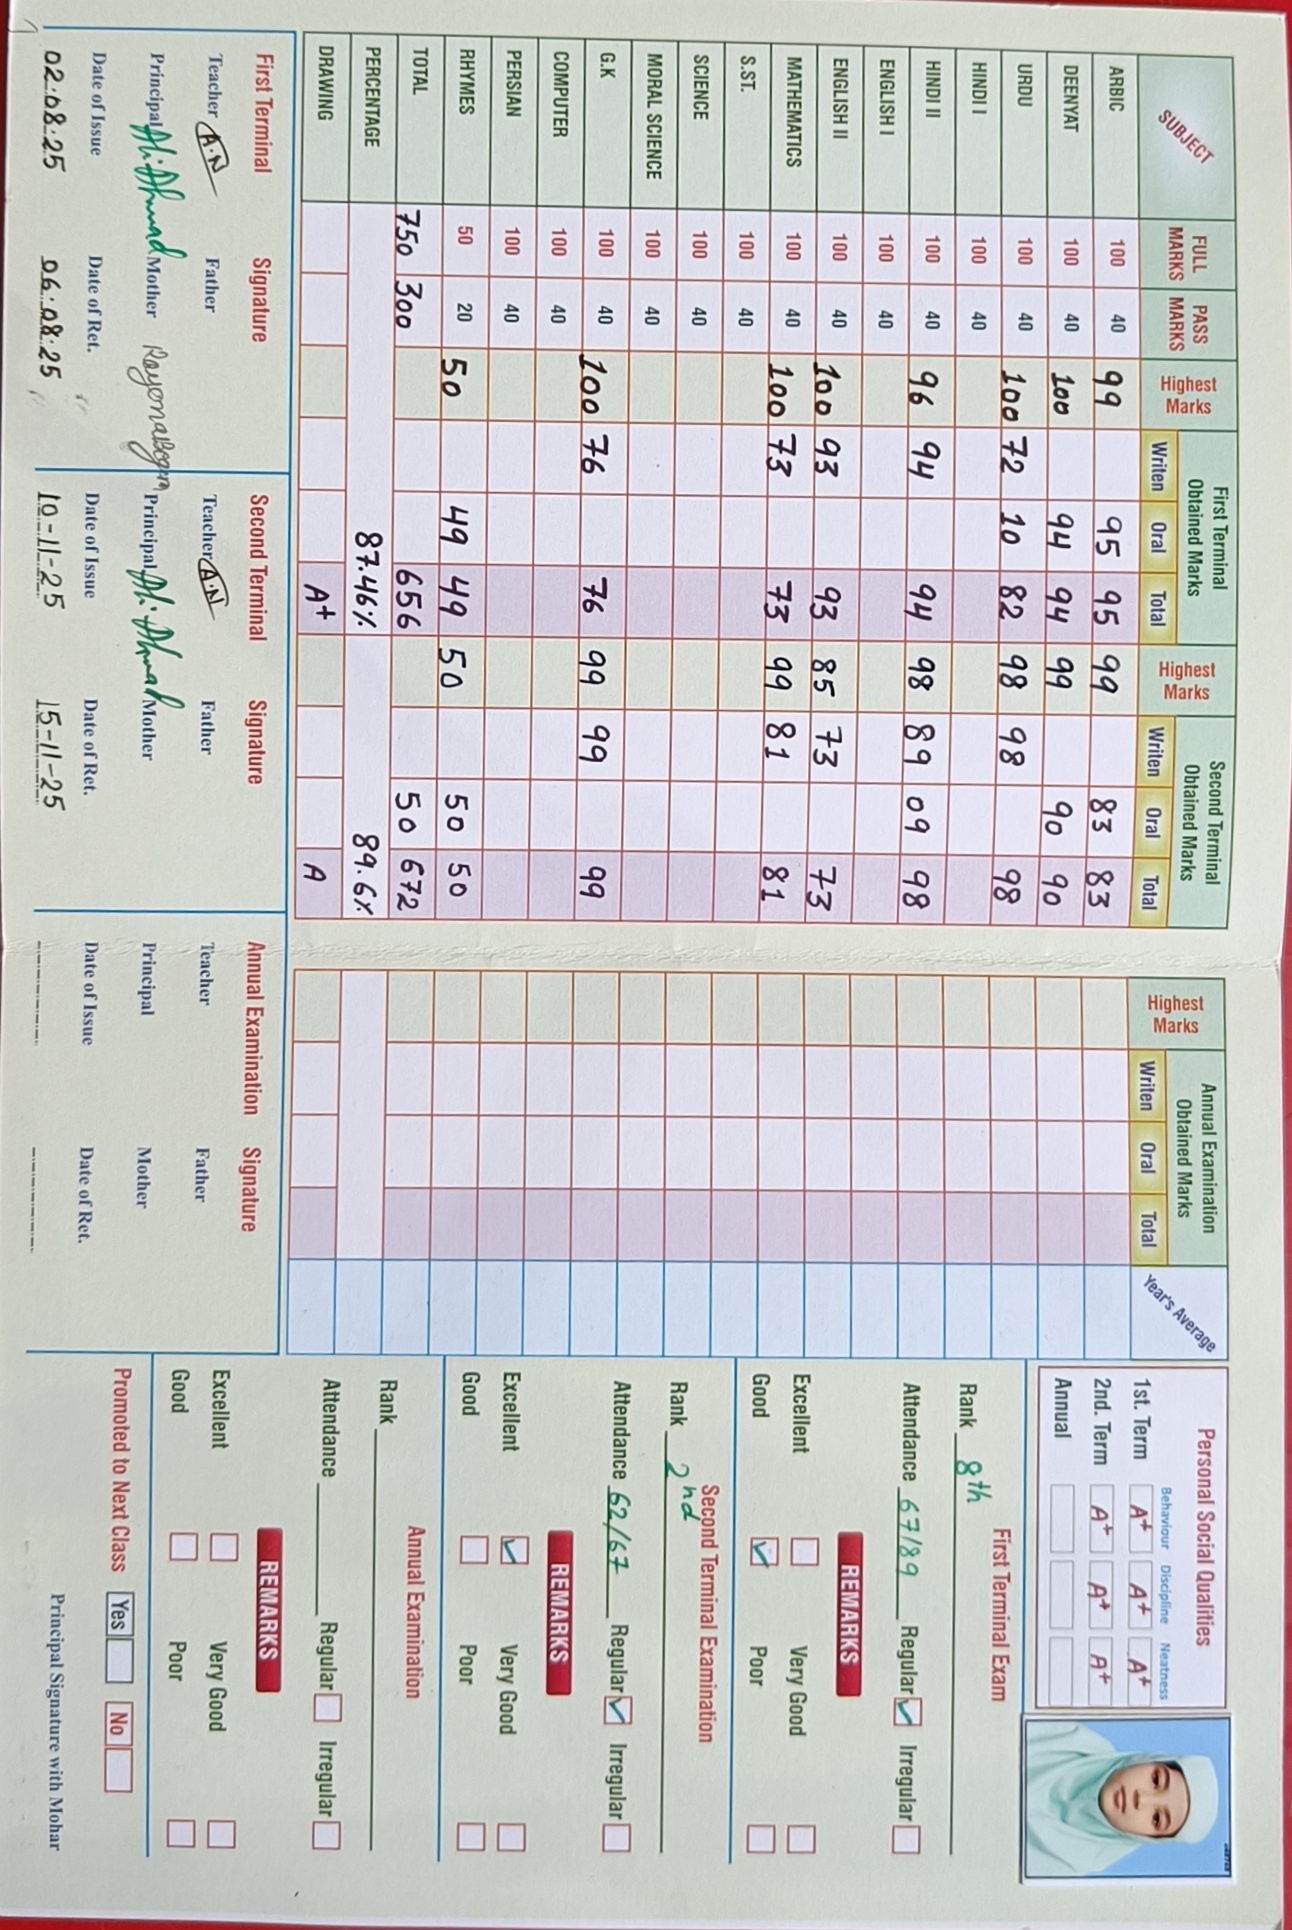 SUBJECT FULL MARKS PASS MARKS Highest Marks First Terminal Obtained Marks Writen Oral Total Highest Marks Second Terminal Obtained Marks Writen Oral Total Highest Marks Annual Examination Obtained Marks Writen Oral Total Year's Average
ARBIC 100 40 99 95 95 99 83 83
DEENYAT 100 40 100 94 94 99 90 90
URDU 100 40 100 72 10 82 98 98 98
HINDI I 100 40
HINDI II 100 40 96 94 94 98 89 09 98
ENGLISH I 100 40
ENGLISH II 100 40 100 93 93 85 73 73
MATHEMATICS 100 40 100 73 73 99 81 81
S.ST. 100 40
SCIENCE 100 40
MORAL SCIENCE 100 40
G.K 100 40 100 76 76 99 99 99
COMPUTER 100 40
PERSIAN 100 40
RHYMES 50 20 50 49 49 50 50 50
TOTAL 750 300 656 50 672
PERCENTAGE 87.46% 89.6%
DRAWING A+ A
First Terminal Signature
Teacher A.N Father
Principal Ali Ahmad Mother
Date of Issue Date of Ret.
02.08.25 06.08.25
Second Terminal Signature
Teacher A.N Father
Principal Ali Ahmad Mother
Date of Issue Date of Ret.
10-11-25 15-11-25
Annual Examination Signature
Teacher Father
Principal Mother
Date of Issue Date of Ret.
Personal Social Qualities
Behaviour Discipline Neatness
1st. Term A+ A+ A+
2nd. Term A+ A+ A+
Annual
First Terminal Exam
Rank 8th
Attendance 67/89 Regular Irregular
REMARKS
Excellent Very Good
Good Poor
Second Terminal Examination
Rank 2nd
Attendance 62/67 Regular Irregular
REMARKS
Excellent Very Good
Good Poor
Annual Examination
Rank
Attendance Regular Irregular
REMARKS
Excellent Very Good
Good Poor
Promoted to Next Class Yes No
Principal Signature with Mohar